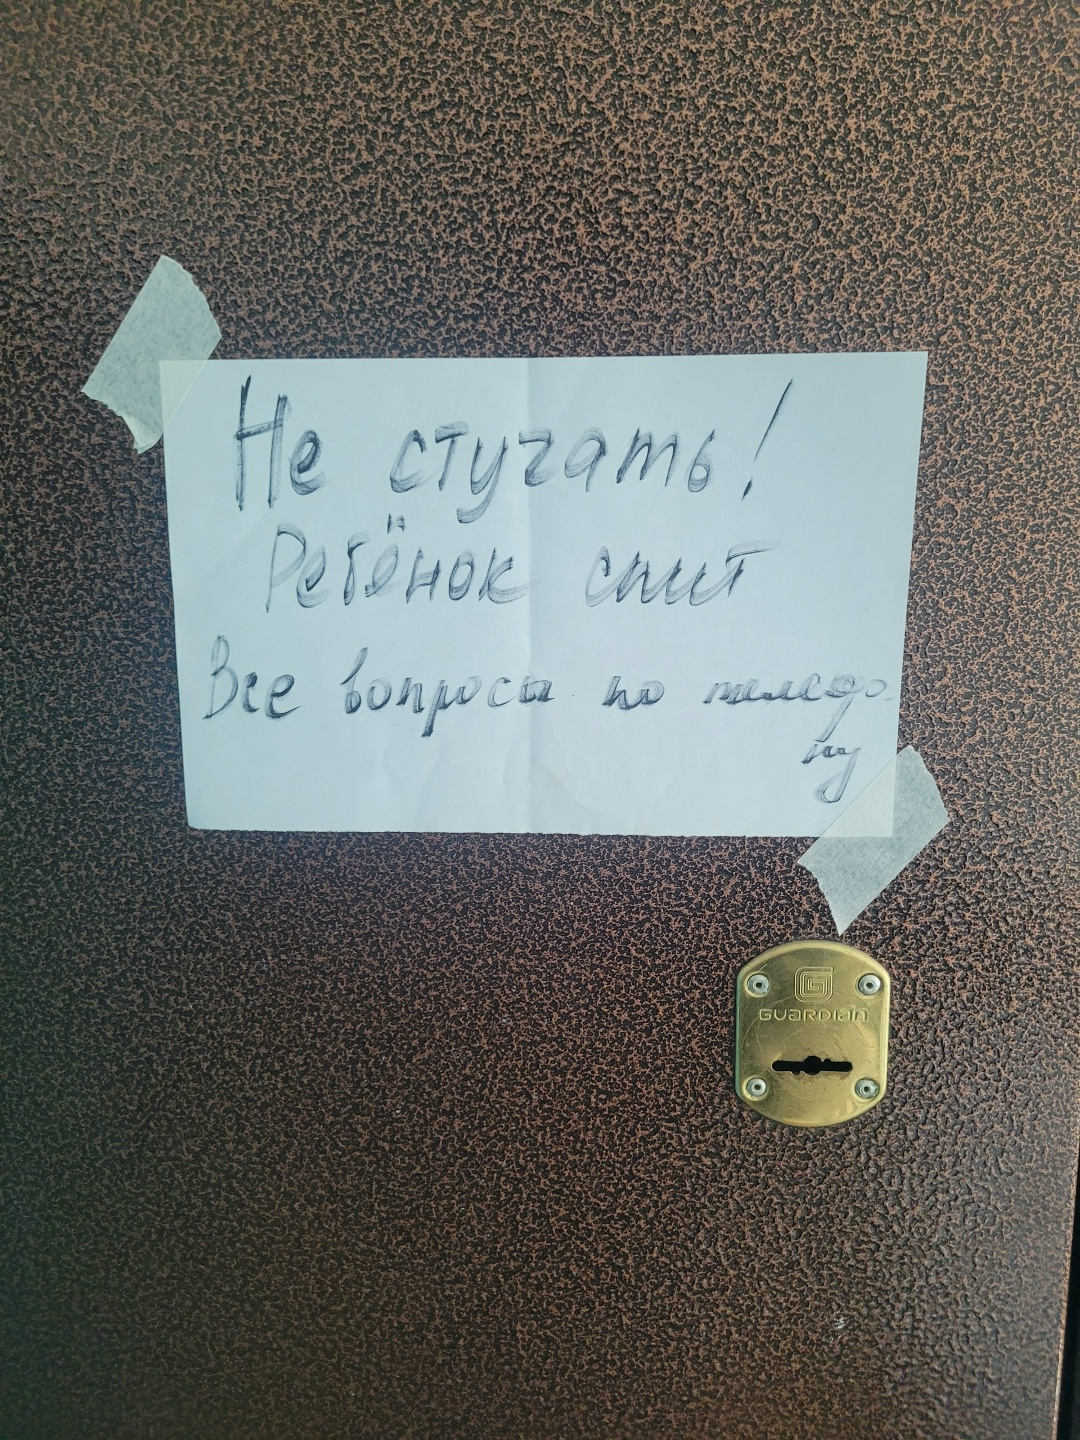 Не стучать!
Ребёнок спит
Все вопросы по телефо
ну
GUARDIAN